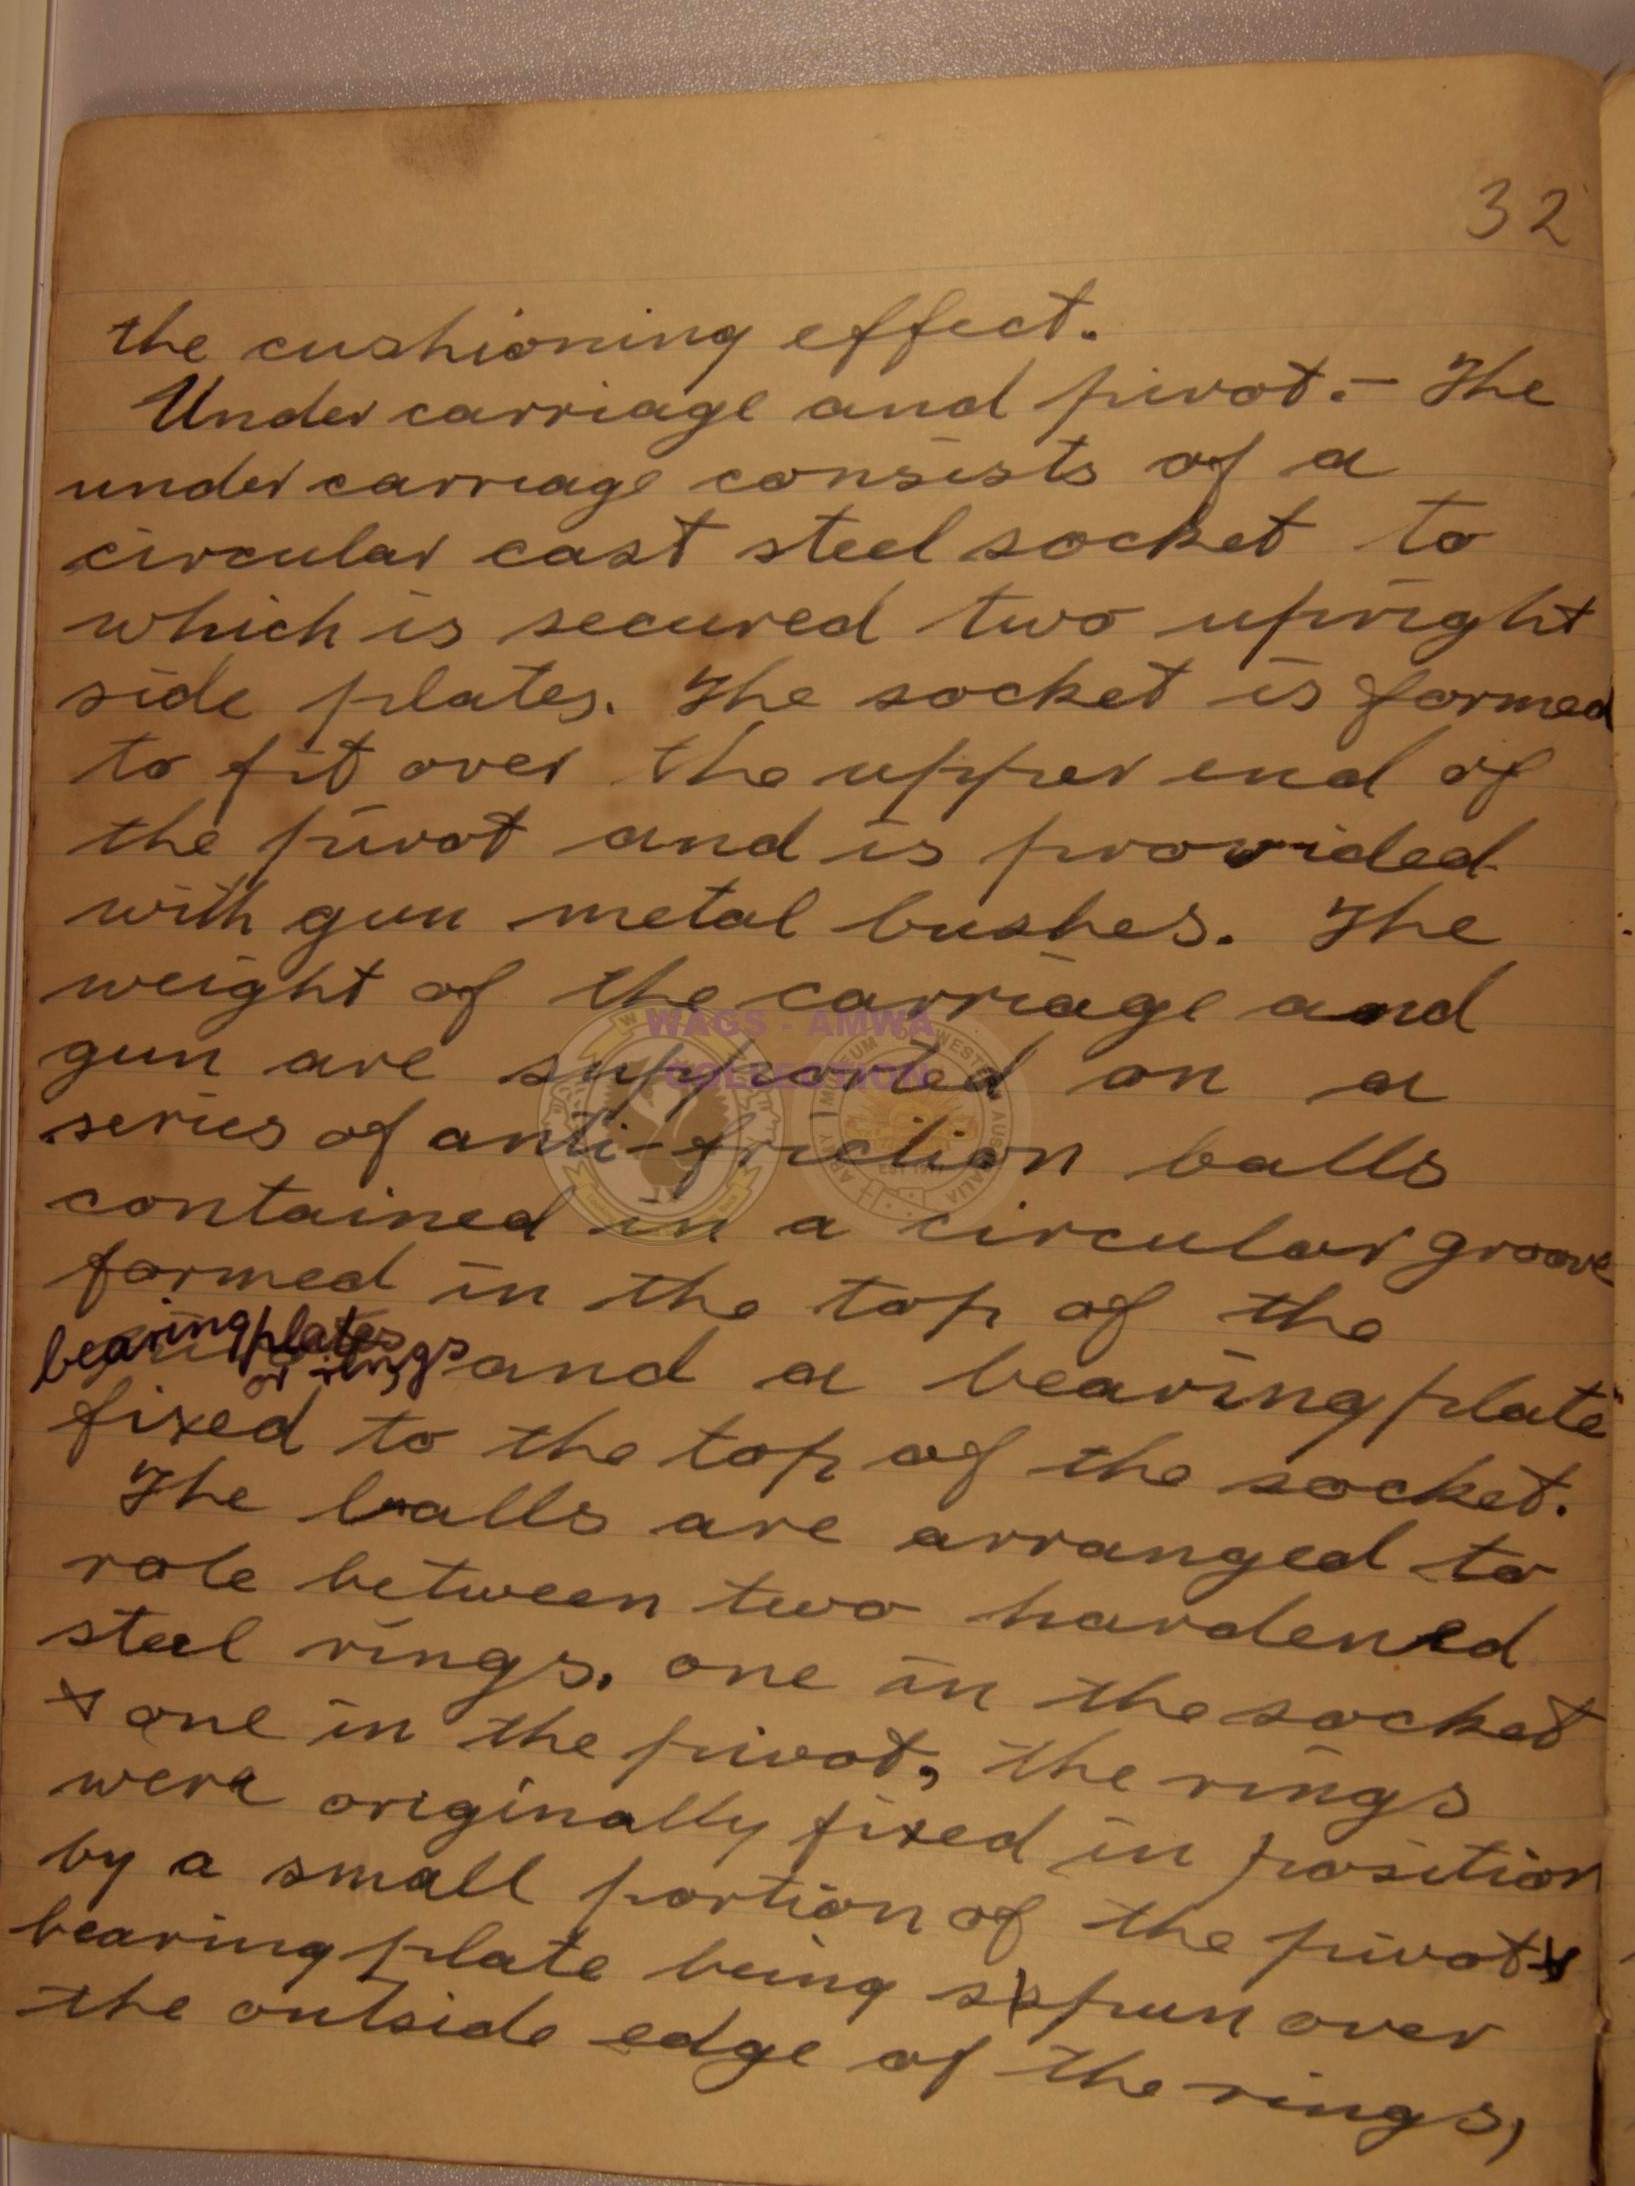 32
the cushioning effect.
Under carriage and pivot.- The
under carriage consists of a
circular cast steel socket to
which is secured two upright
side plates. The socket is formed
to fit over the upper end of
the pivot and is provided
with gun metal bushes. The
weight of the carriage and
gun are supported on a
series of anti-friction balls
contained in a circular groove
formed in the top of the
bearing plates
or rings and a bearing plate
fixed to the top of the socket.
The balls are arranged to
role between two hardened
steel rings, one in the socket
& one in the pivot, the rings
were originally fixed in position
by a small portion of the pivot &
bearing plate being spun over
the outside edge of the rings,
WAGS - AMWA
COLLECTION
ARMY MUSEUM OF WESTERN AUSTRALIA